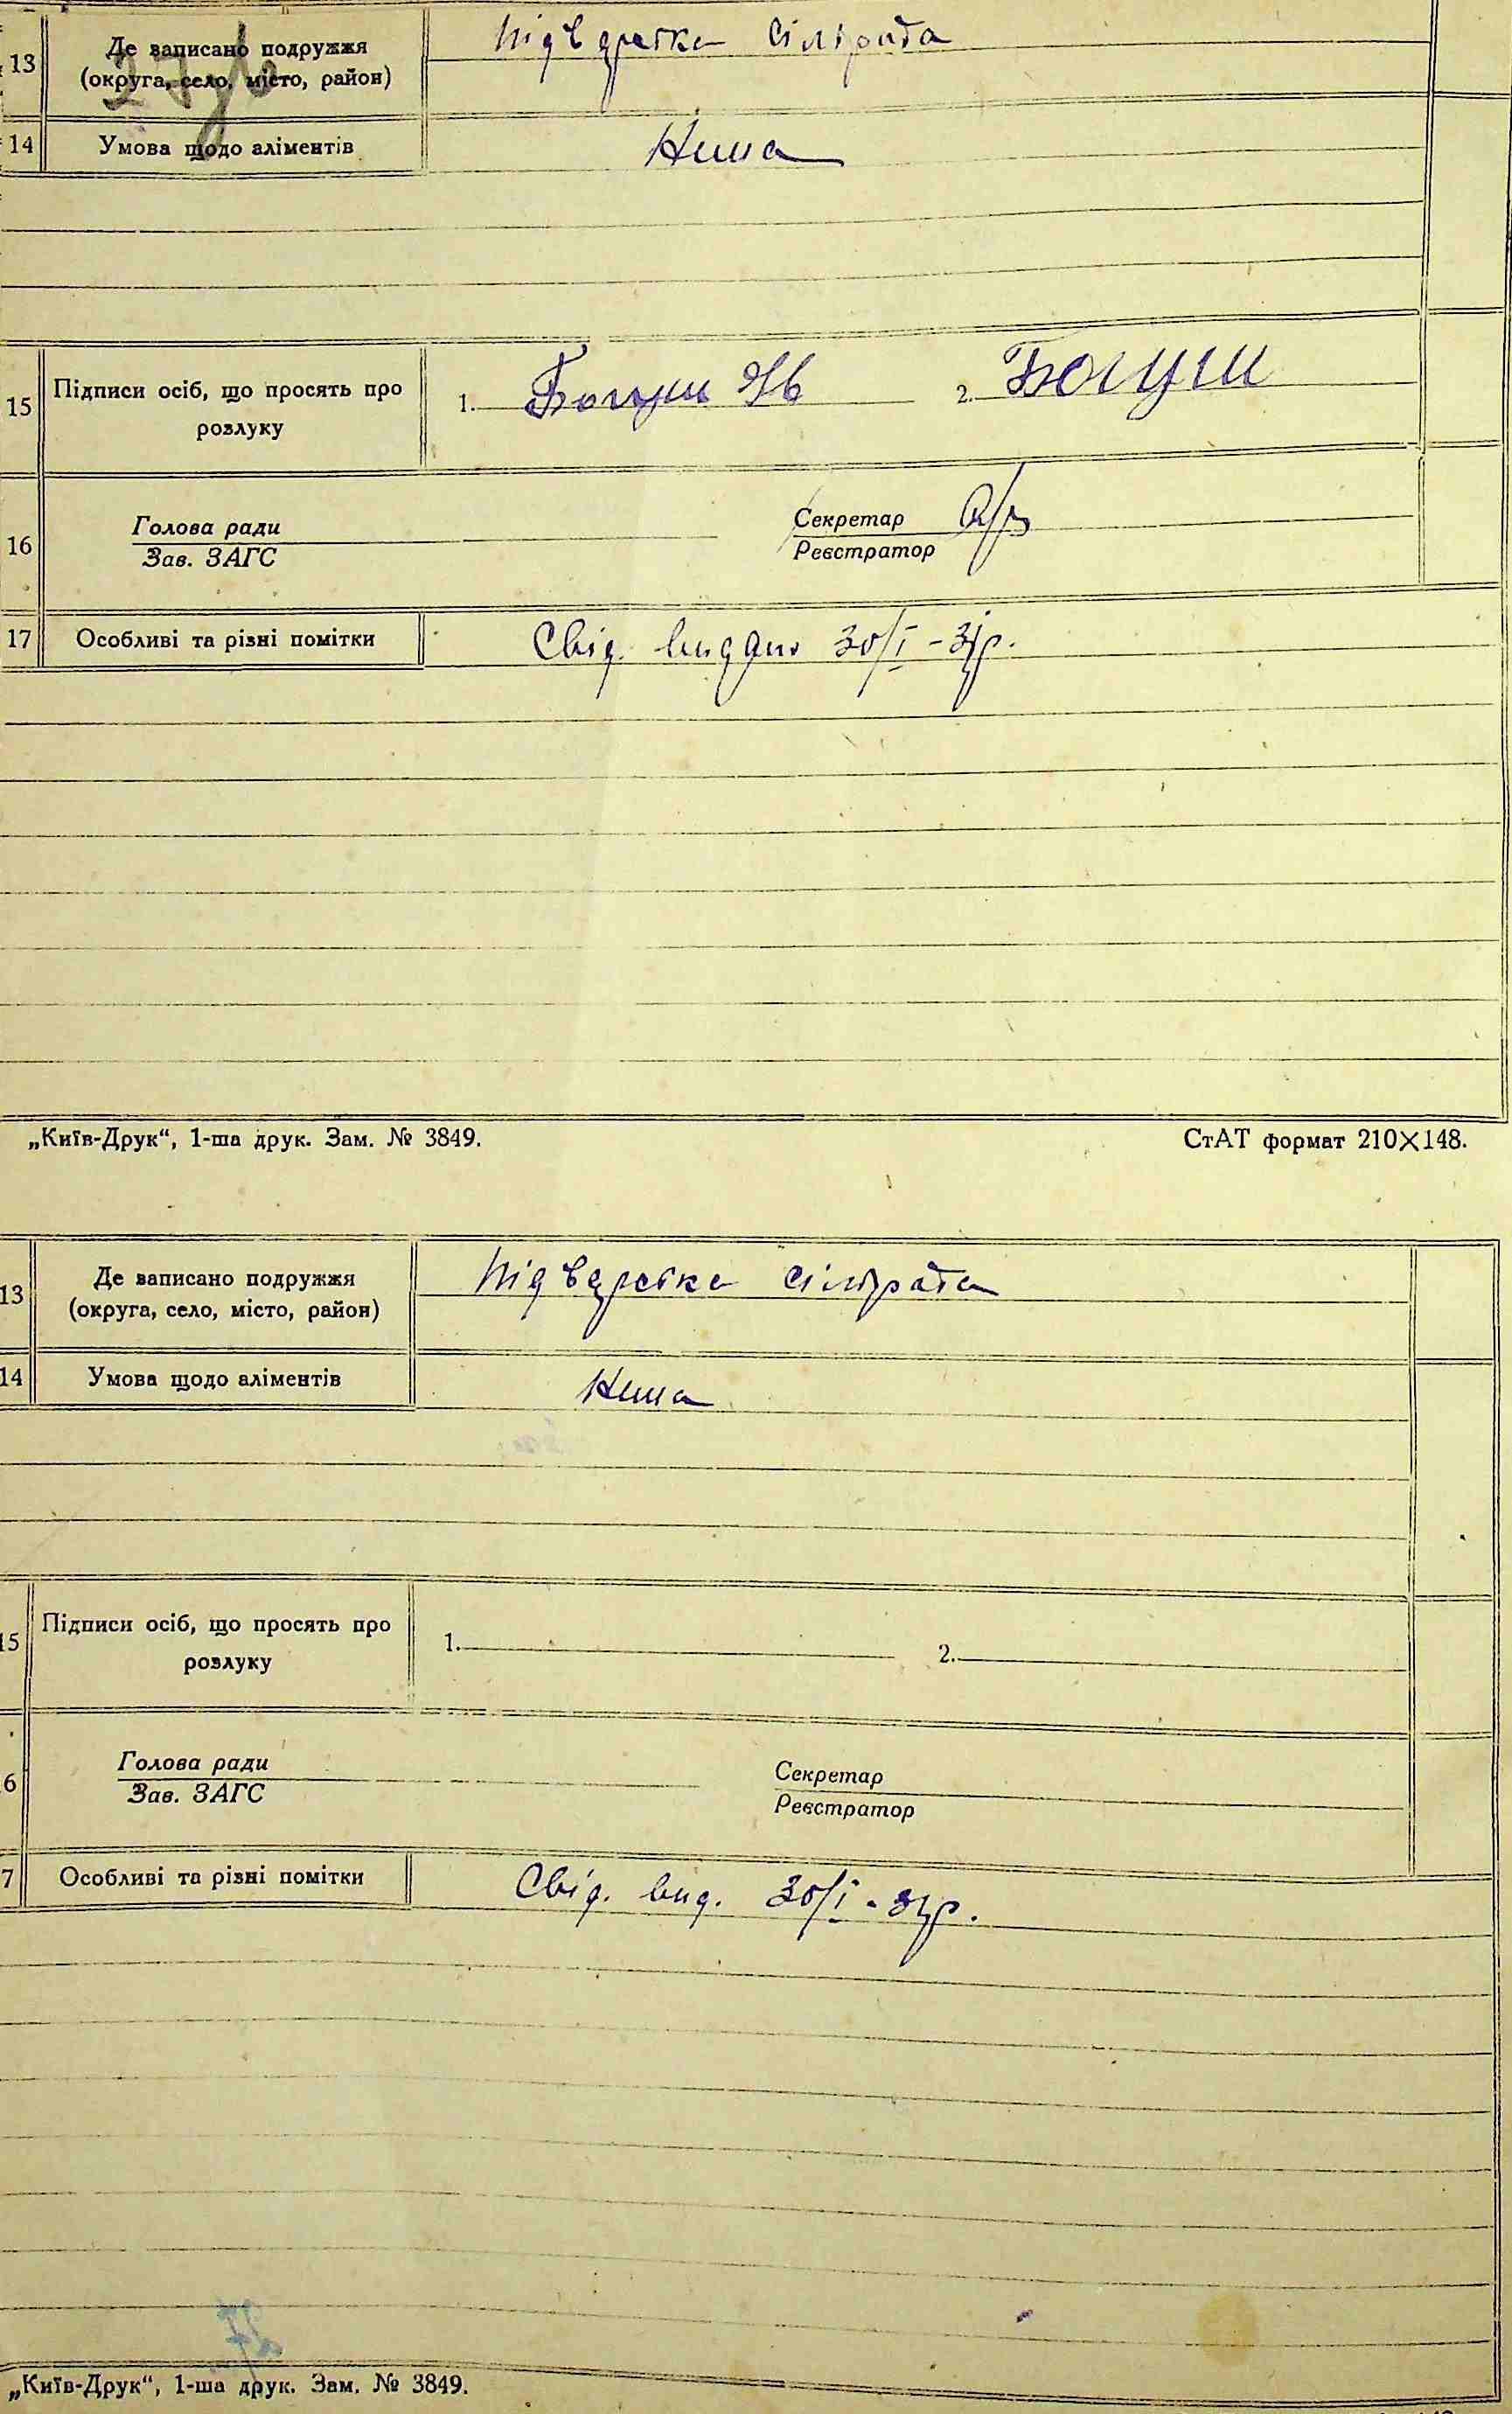 13 Де записано подружжя Підварська сільрада
(округа, село, місто, район)
14 Умова щодо аліментів Нема
15 Підписи осіб, що просять про розлуку 1. Богуш Ів 2. Богуш
16 Голова ради Секретар
Зав. ЗАГС Реєстратор
17 Особливі та різні помітки Свід. виддно 30/I - 31р.
„Київ-Друк“, 1-ша друк. Зам. № 3849. СтАТ формат 210×148.
13 Де записано подружжя Підварська сільрада
(округа, село, місто, район)
14 Умова щодо аліментів Нема
15 Підписи осіб, що просять про розлуку 1. 2.
6 Голова ради Секретар
Зав. ЗАГС Реєстратор
7 Особливі та різні помітки Свід. вид. 30/I - 31р.
„Київ-Друк“, 1-ша друк. Зам. № 3849.